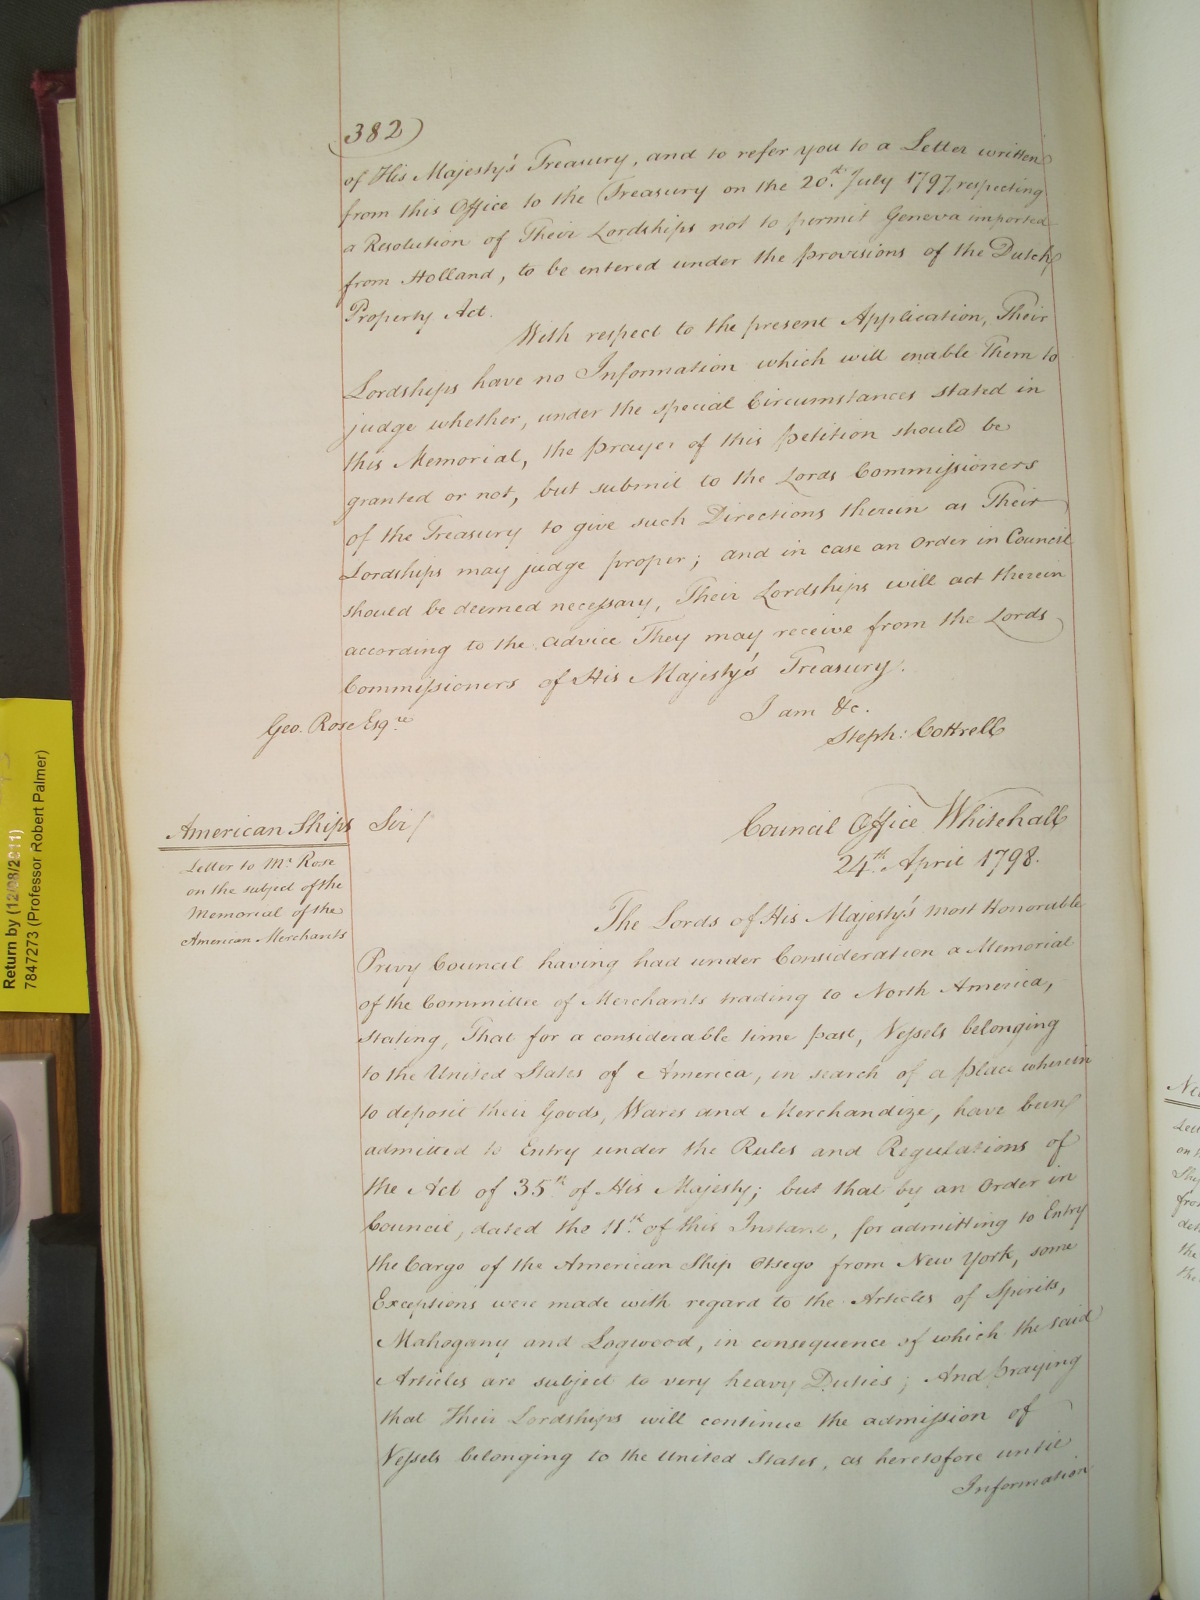 382)
of His Majesty's Treasury, and to refer you to a Letter written
from this Office to the Treasury on the 20.th July 1797, respecting
a Resolution of Their Lordships not to permit Geneva imported
from Holland, to be entered under the provisions of the Dutch
Property Act.
With respect to the present Application, Their
Lordships have no Information which will enable Them to
judge whether, under the special Circumstances stated in
this Memorial, the prayer of this petition should be
granted or not, but submit to the Lords Commissioners
of the Treasury to give such Directions therein as Their
Lordships may judge proper; and in case an Order in Council
should be deemed necessary, Their Lordships will act therein
according to the advice They may receive from the Lords
Commissioners of His Majesty's Treasury.
I am &c.
Geo. Rose Esq.re
Steph: Cottrell
American Ships
Letter to Mr. Rose
on the subject of the
Memorial of the
American Merchants
Sir/
Council Office Whitehall
24.th April 1798.
The Lords of His Majesty's most Honorable
Privy Council having had under Consideration a Memorial
of the Committee of Merchants trading to North America,
stating, That for a considerable time past, Vessels belonging
to the United States of America, in search of a place wherein
to deposit their Goods, Wares and Merchandize, have been
admitted to Entry under the Rules and Regulations of
the Act of 35.th of His Majesty; but that by an Order in
Council, dated the 11.th of this Instant, for admitting to Entry
the Cargo of the American Ship Otsego from New York, some
Exceptions were made with regard to the Articles of Spirits,
Mahogany and Logwood, in consequence of which the said
Articles are subject to very heavy Duties; And praying
that Their Lordships will continue the admission of
Vessels belonging to the United States, as heretofore until
Information
Return by (12/08/2011)
7847273 (Professor Robert Palmer)